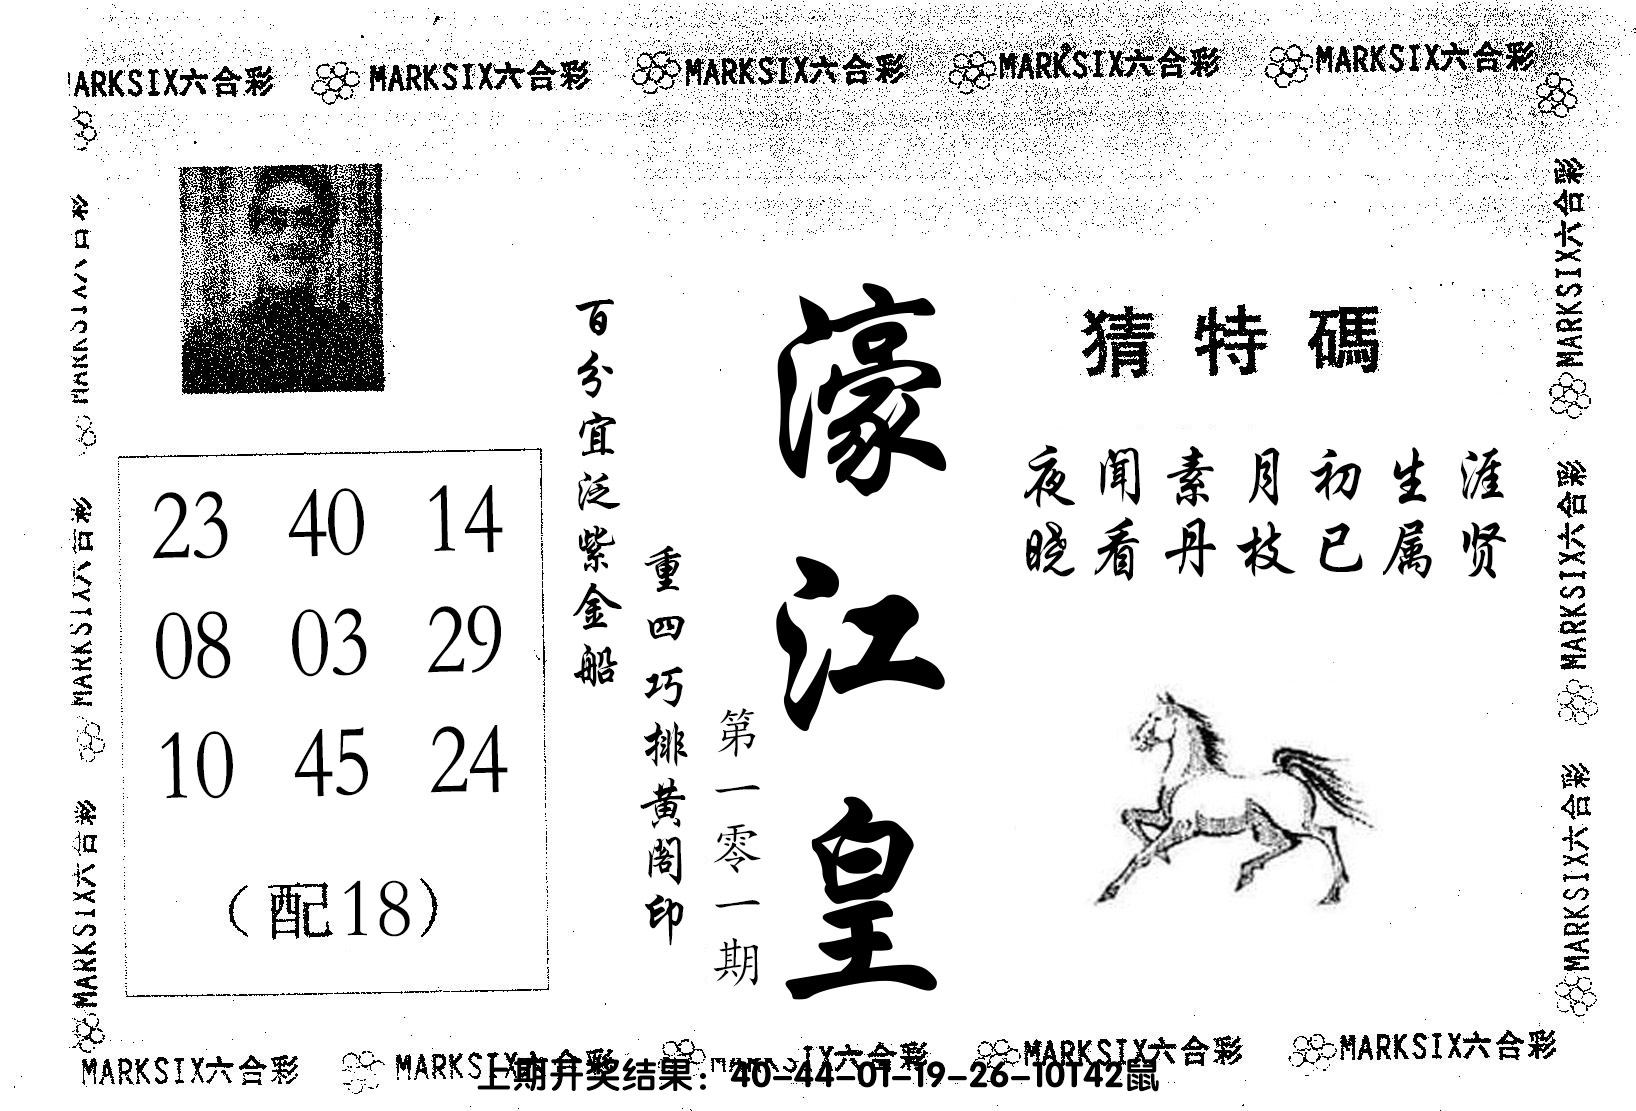 MARKSIX六合彩 MARKSIX六合彩 MARKSIX六合彩 MARKSIX六合彩
猜特碼
夜闻素月初生涯
晓看丹枝已属贤
濠江皇
第一零一期
重四巧排黄阁印
百分宜泛紫金船
23 40 14
08 03 29
10 45 24
（配18）
MARKSIX六合彩
MARKSIX六合彩
MARKSIX六合彩
MARKSIX六合彩
MARKSIX六合彩
MARKSIX六合彩 MARKSIX六合彩 MARKSIX六合彩 MARKSIX六合彩
上期开奖结果：40-44-01-19-26-10T42鼠